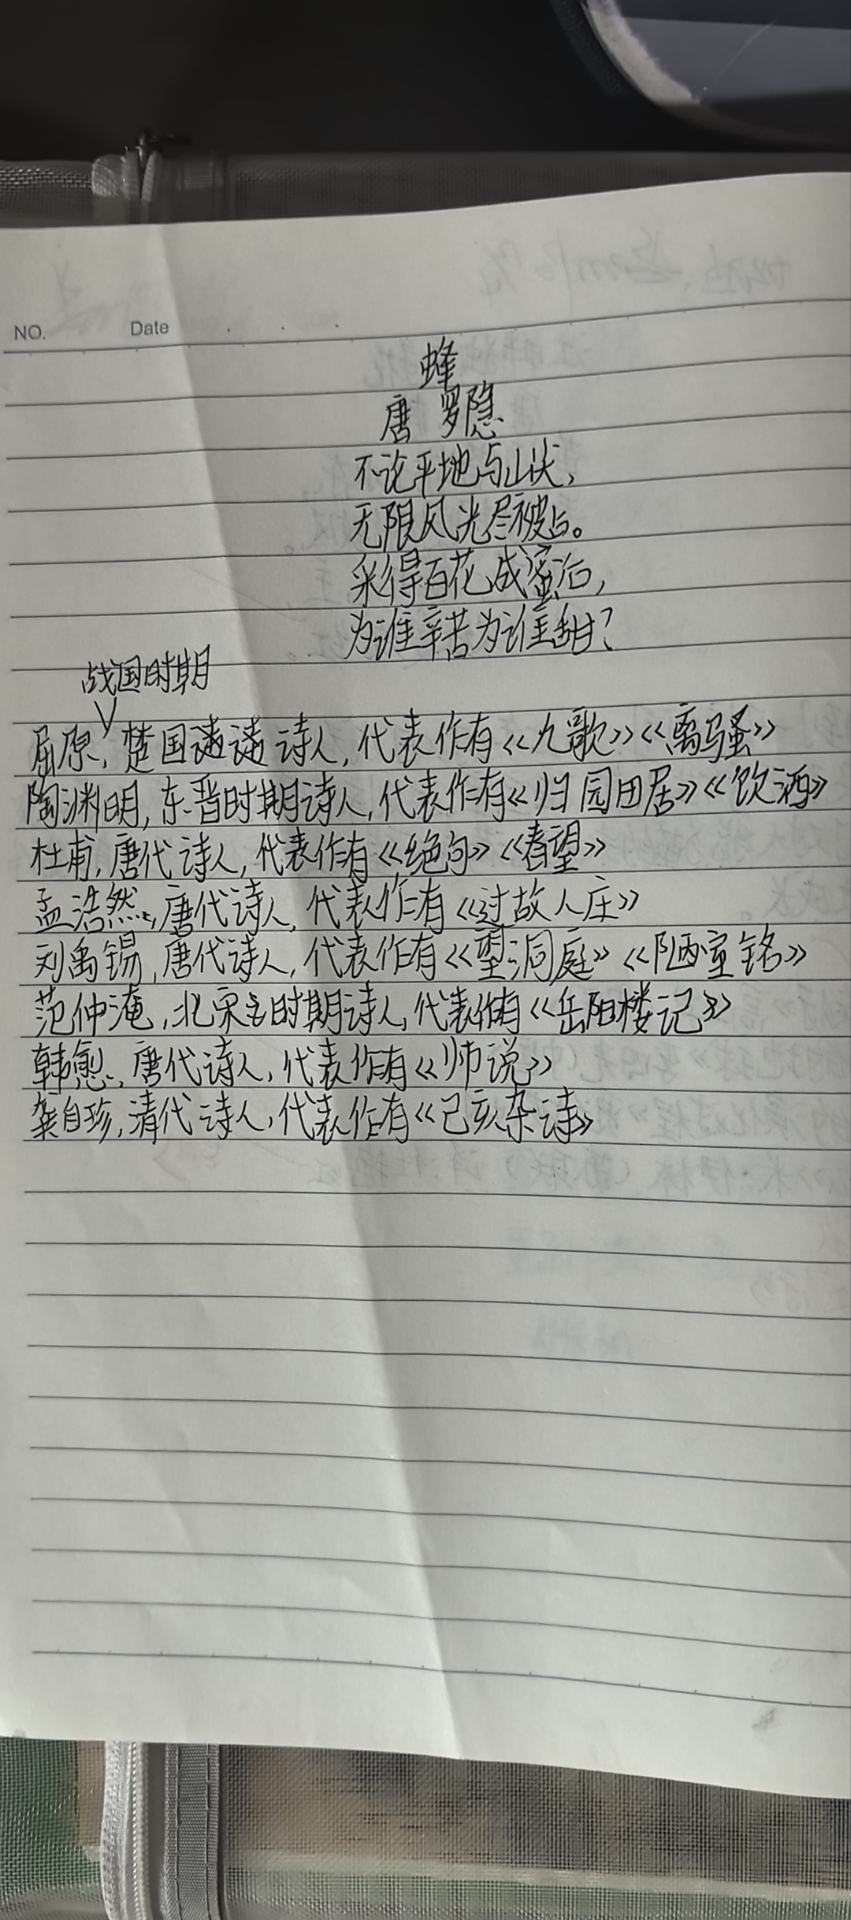 NO. Date
蜂
唐 罗隐
不论平地与山尖，
无限风光尽被占。
采得百花成蜜后，
为谁辛苦为谁甜？
战国时期
屈原，楚国诗人，代表作有《九歌》《离骚》
陶渊明，东晋时期诗人，代表作有《归园田居》《饮酒》
杜甫，唐代诗人，代表作有《绝句》《春望》
孟浩然，唐代诗人，代表作有《过故人庄》
刘禹锡，唐代诗人，代表作有《望洞庭》《陋室铭》
范仲淹，北宋时期诗人，代表作有《岳阳楼记》
韩愈，唐代诗人，代表作有《师说》
龚自珍，清代诗人，代表作有《己亥杂诗》